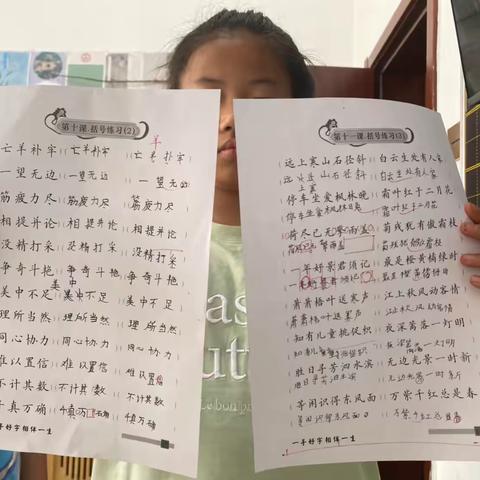 第十课.括号练习(2)
亡羊补牢 亡羊补牢 亡羊补牢
羊
一望无边 一望无边 一望无边
筋疲力尽 筋疲力尽 筋疲力尽
相提并论 相提并论 相提并论
没精打采 没精打采 没精打采
争奇斗艳 争奇斗艳 争奇斗艳
美中不足 美中不足 美中不足
理所当然 理所当然 理所当然
同心协力 同心协力 同心协力
难以置信 难以置信 难以置信
不计其数 不计其数 不计其数
千真万确 千真万确 千真万确
一手好字相伴一生
第十一课.括号练习(3)
远上寒山石径斜 白云生处有人家
远上寒山石径斜 白云生处有人家
停车坐爱枫林晚 霜叶红于二月花
停车坐爱枫林晚 霜叶红于二月花
荷尽已无擎雨盖 菊残犹有傲霜枝
荷尽已无擎雨盖 菊残犹有傲霜枝
一年好景君须记 最是橙黄橘绿时
一年好景君须记 最是橙黄橘绿时
萧萧梧叶送寒声 江上秋风动客情
萧萧梧叶送寒声 江上秋风动客情
知有儿童挑促织 夜深篱落一灯明
知有儿童挑促织 夜深篱落一灯明
胜日寻芳泗水滨 无边光景一时新
胜日寻芳泗水滨 无边光景一时新
等闲识得东风面 万紫千红总是春
等闲识得东风面 万紫千红总是春
一手好字相伴一生